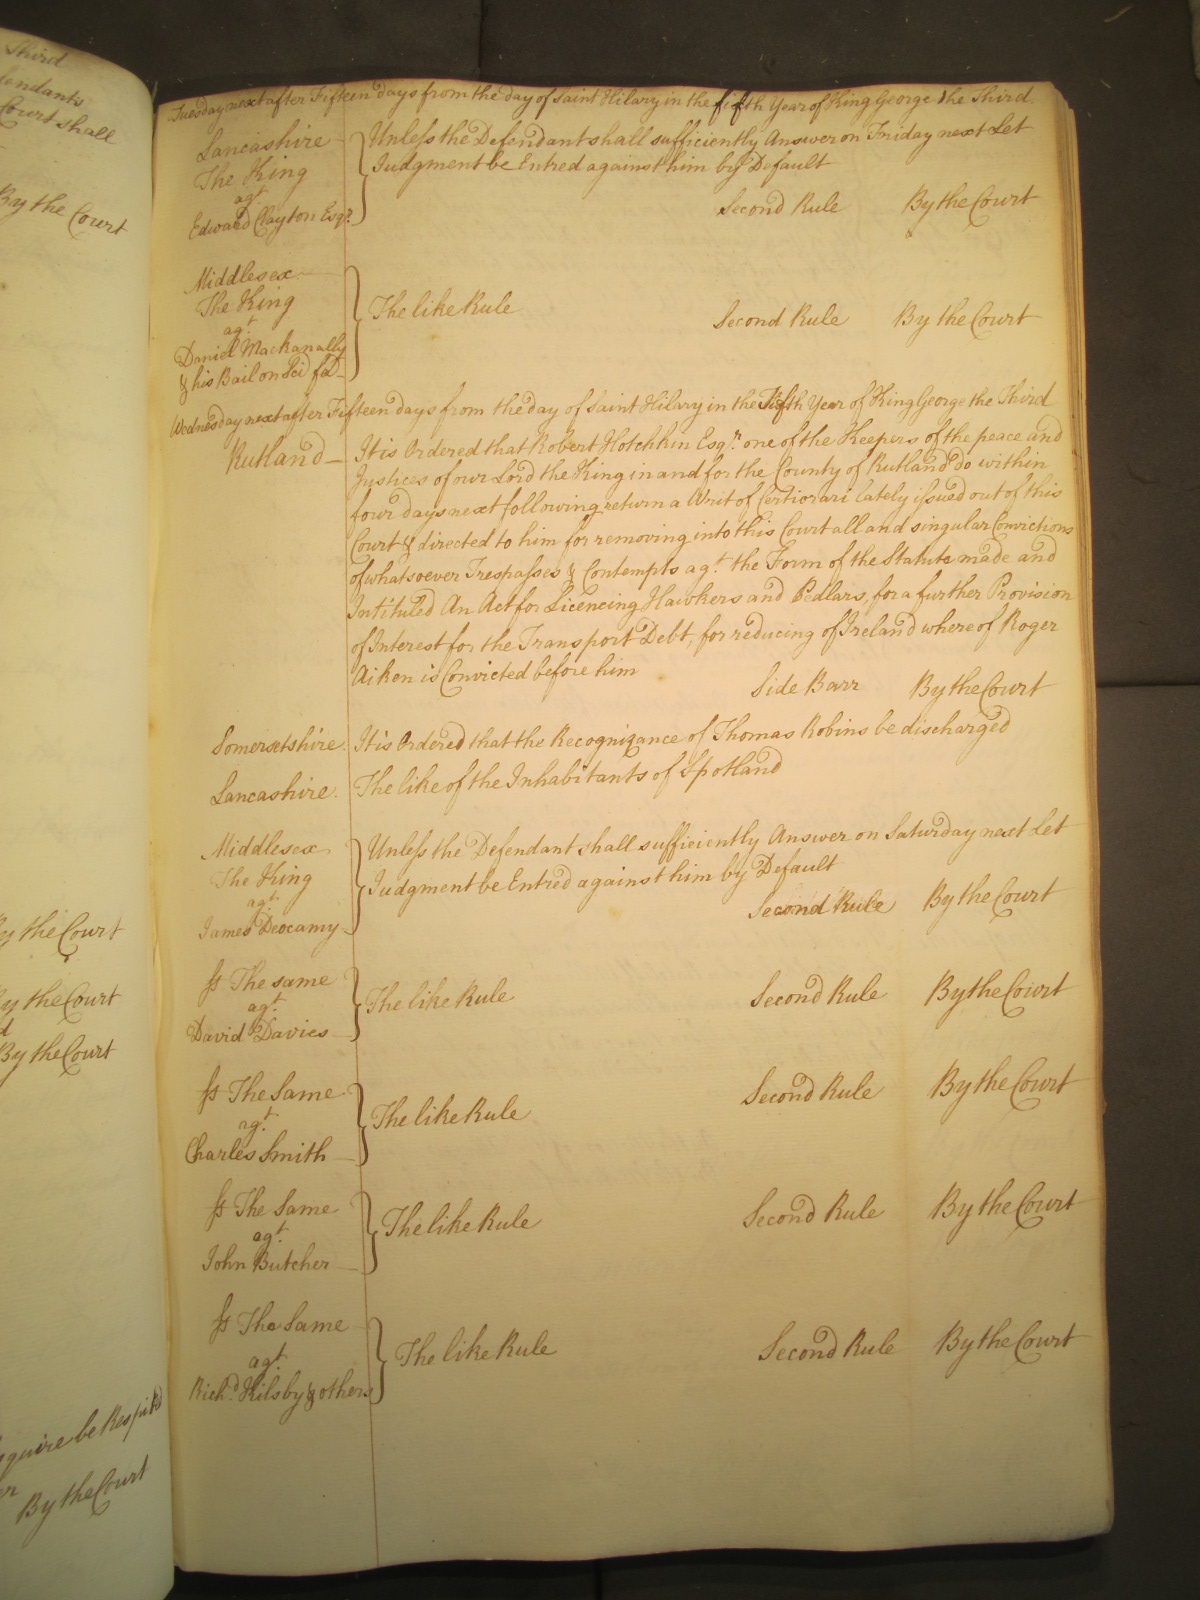 Third
fendants
Court shall
By the Court
By the Court
By the Court
d
By the Court
squire be Respited
er
By the Court
Tuesday next after Fifteen days from the day of Saint Hilary in the fifth Year of King George the Third
Lancashire
The King
agt.
Edward Clayton Esqr.
Unless the Defendant shall sufficiently Answer on Friday next Let
Judgment be Entred against him by Default
Second Rule By the Court
Middlesex
The King
agt.
Daniel Mackanally
& his Bail on Sci fa
The like Rule Second Rule By the Court
Wednesday next after Fifteen days from the day of Saint Hilary in the Fifth Year of King George the Third
Rutland It is Ordered that Robert Hotchkin Esqr. one of the Keepers of the peace and
Justices of our Lord the King in and for the County of Rutland do within
four days next following return a Writ of Certiorari lately issued out of this
Court & directed to him for removing into this Court all and singular Convictions
of whatsoever Trespasses & Contempts agt. the Form of the Statute made and
Intituled An Act for Licencing Hawkers and Pedlars, for a further Provision
of Interest for the Transport Debt, for reducing of Ireland whereof Roger
Aiken is Convicted before him
Side Barr By the Court
Somersetshire. It is Ordered that the Recognizance of Thomas Robins be discharged
Lancashire. The like of the Inhabitants of Spotland
Middlesex
The King
agt.
James Deocamy
Unless the Defendant shall sufficiently Answer on Saturday next Let
Judgment be Entred against him by Default
Second Rule By the Court
Ss The same
agt.
David Davies
The like Rule Second Rule By the Court
Ss The Same
agt.
Charles Smith
The like Rule Second Rule By the Court
Ss The Same
agt.
John Butcher
The like Rule Second Rule By the Court
Ss The Same
agt.
Richd. Kilsby & others
The like Rule Second Rule By the Court